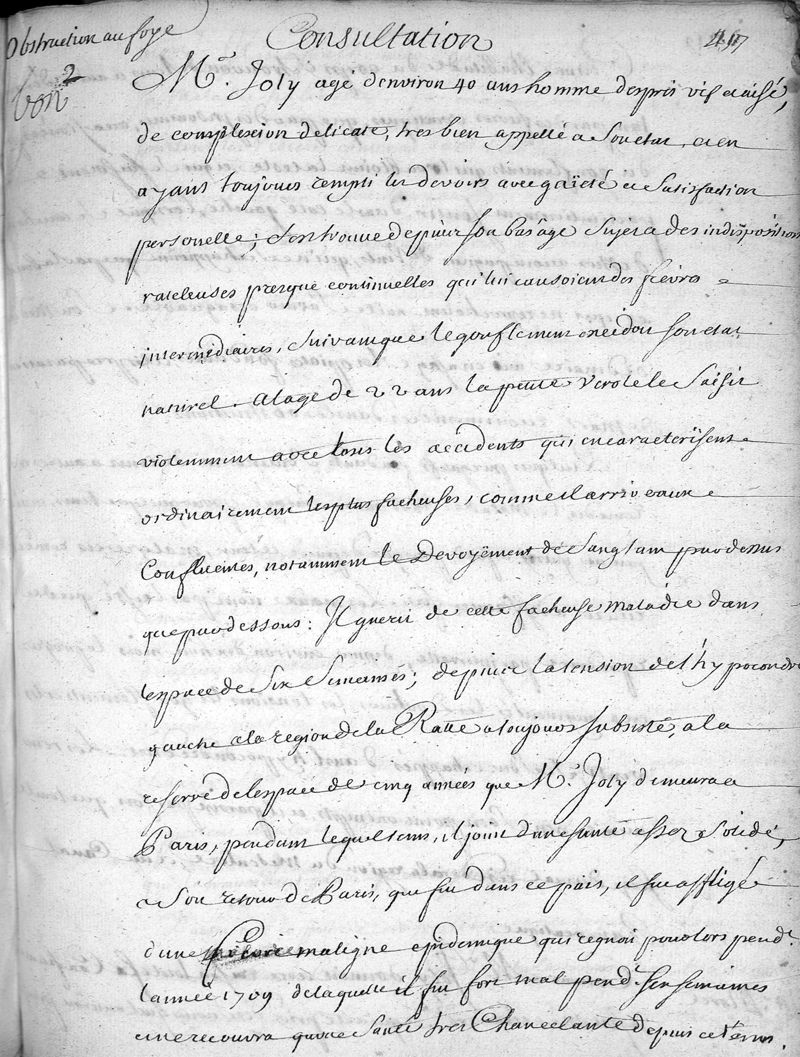 Obstruction au foye
Consultation
bon
2
Mr. Joly agé denviron 40 ans homme desprit vif et aisé,
de complexion delicate, tres bien appellé a Son etat, et en
ayant toujours rempli les devoirs avec gaïeté et Satisfaction
personelle; Sest trouvé depuis Son bas age Sujet a des indispositions
rateleuses presque continuelles qui lui causoient des fievres
intermédiaires, Suivant que le gonflement excedoit Son etat
naturel. a lage de 22 ans la petite verole le Saisit
violemment avec tous les accidents qui en caracterisent
ordinairement les plus facheuses, comme il arrive aux
Confluentes, notamment le Devoyëment de Sang tant par dessus
que par dessous: Il guerit de cette facheuse maladie dans
lespace de Six Semaines; depuis la tension de lhypocondre
gauche et la region de la Ratte a toujours Subsisté, a la
reserve de lespace de cinq années que Mr. Joly demeura a
Paris, pendant lequel tems, il jouit dune santé assez Solide,
a Son retour de Paris, que fut dans ce païs, il fut affligé
dune fievre maligne epidemique qui regnoit pour lors pendt.
lannée 1709 de laquelle il fut fort mal pendt. Six Semaines
et ne recouvra quune Santé tres Chancelante depuis ce tems.